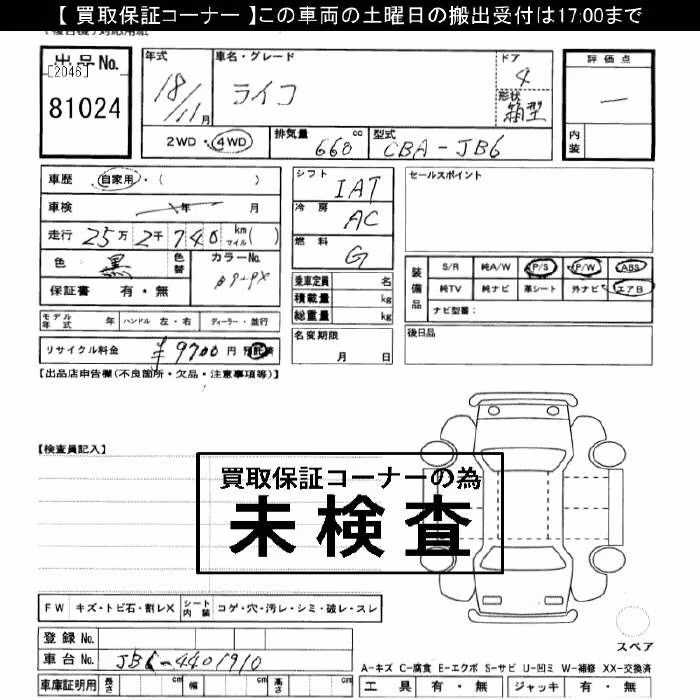 【 買取保証コーナー 】この車両の土曜日の搬出受付は17:00まで
出品No.
[2046]
81024
年式 車名・グレード ドア
18/11月 ライコ 4
形状 箱型
2WD・4WD 排気量 660 cc 型式 CBA-JB6
評価点
一
内装
車歴 自家用・( )
車検 年 月
走行 25万2千740 km マイル( )
色 黒 色替 カラーNo.
保証書 有・無
モデル年式 年 ハンドル 左・右 ディーラー・並行
リサイクル料金 ¥9700円 預託済
シフト IAT
冷房 AC
燃料 G
乗車定員 名
積載量 kg
総重量 kg
名変期限
月 日
セールスポイント
装備品 S/R 純A/W P/S P/W ABS
純TV 純ナビ 革シート 外ナビ エアB
ナビ型番:
後日品
【出品店申告欄(不良箇所・欠品・注意事項等)】
【検査員記入】
買取保証コーナーの為
未検査
FW キズ・トビ石・割レX シート内装 コゲ・穴・汚レ・シミ・破レ・スレ
登録No.
車台No. JB6-4401910
車庫証明用 長さ cm 幅 cm 高さ cm
スペア
A-キズ C-腐食 E-エクボ S-サビ U-凹ミ W-補修 XX-交換済
工具 有・無 ジャッキ 有・無